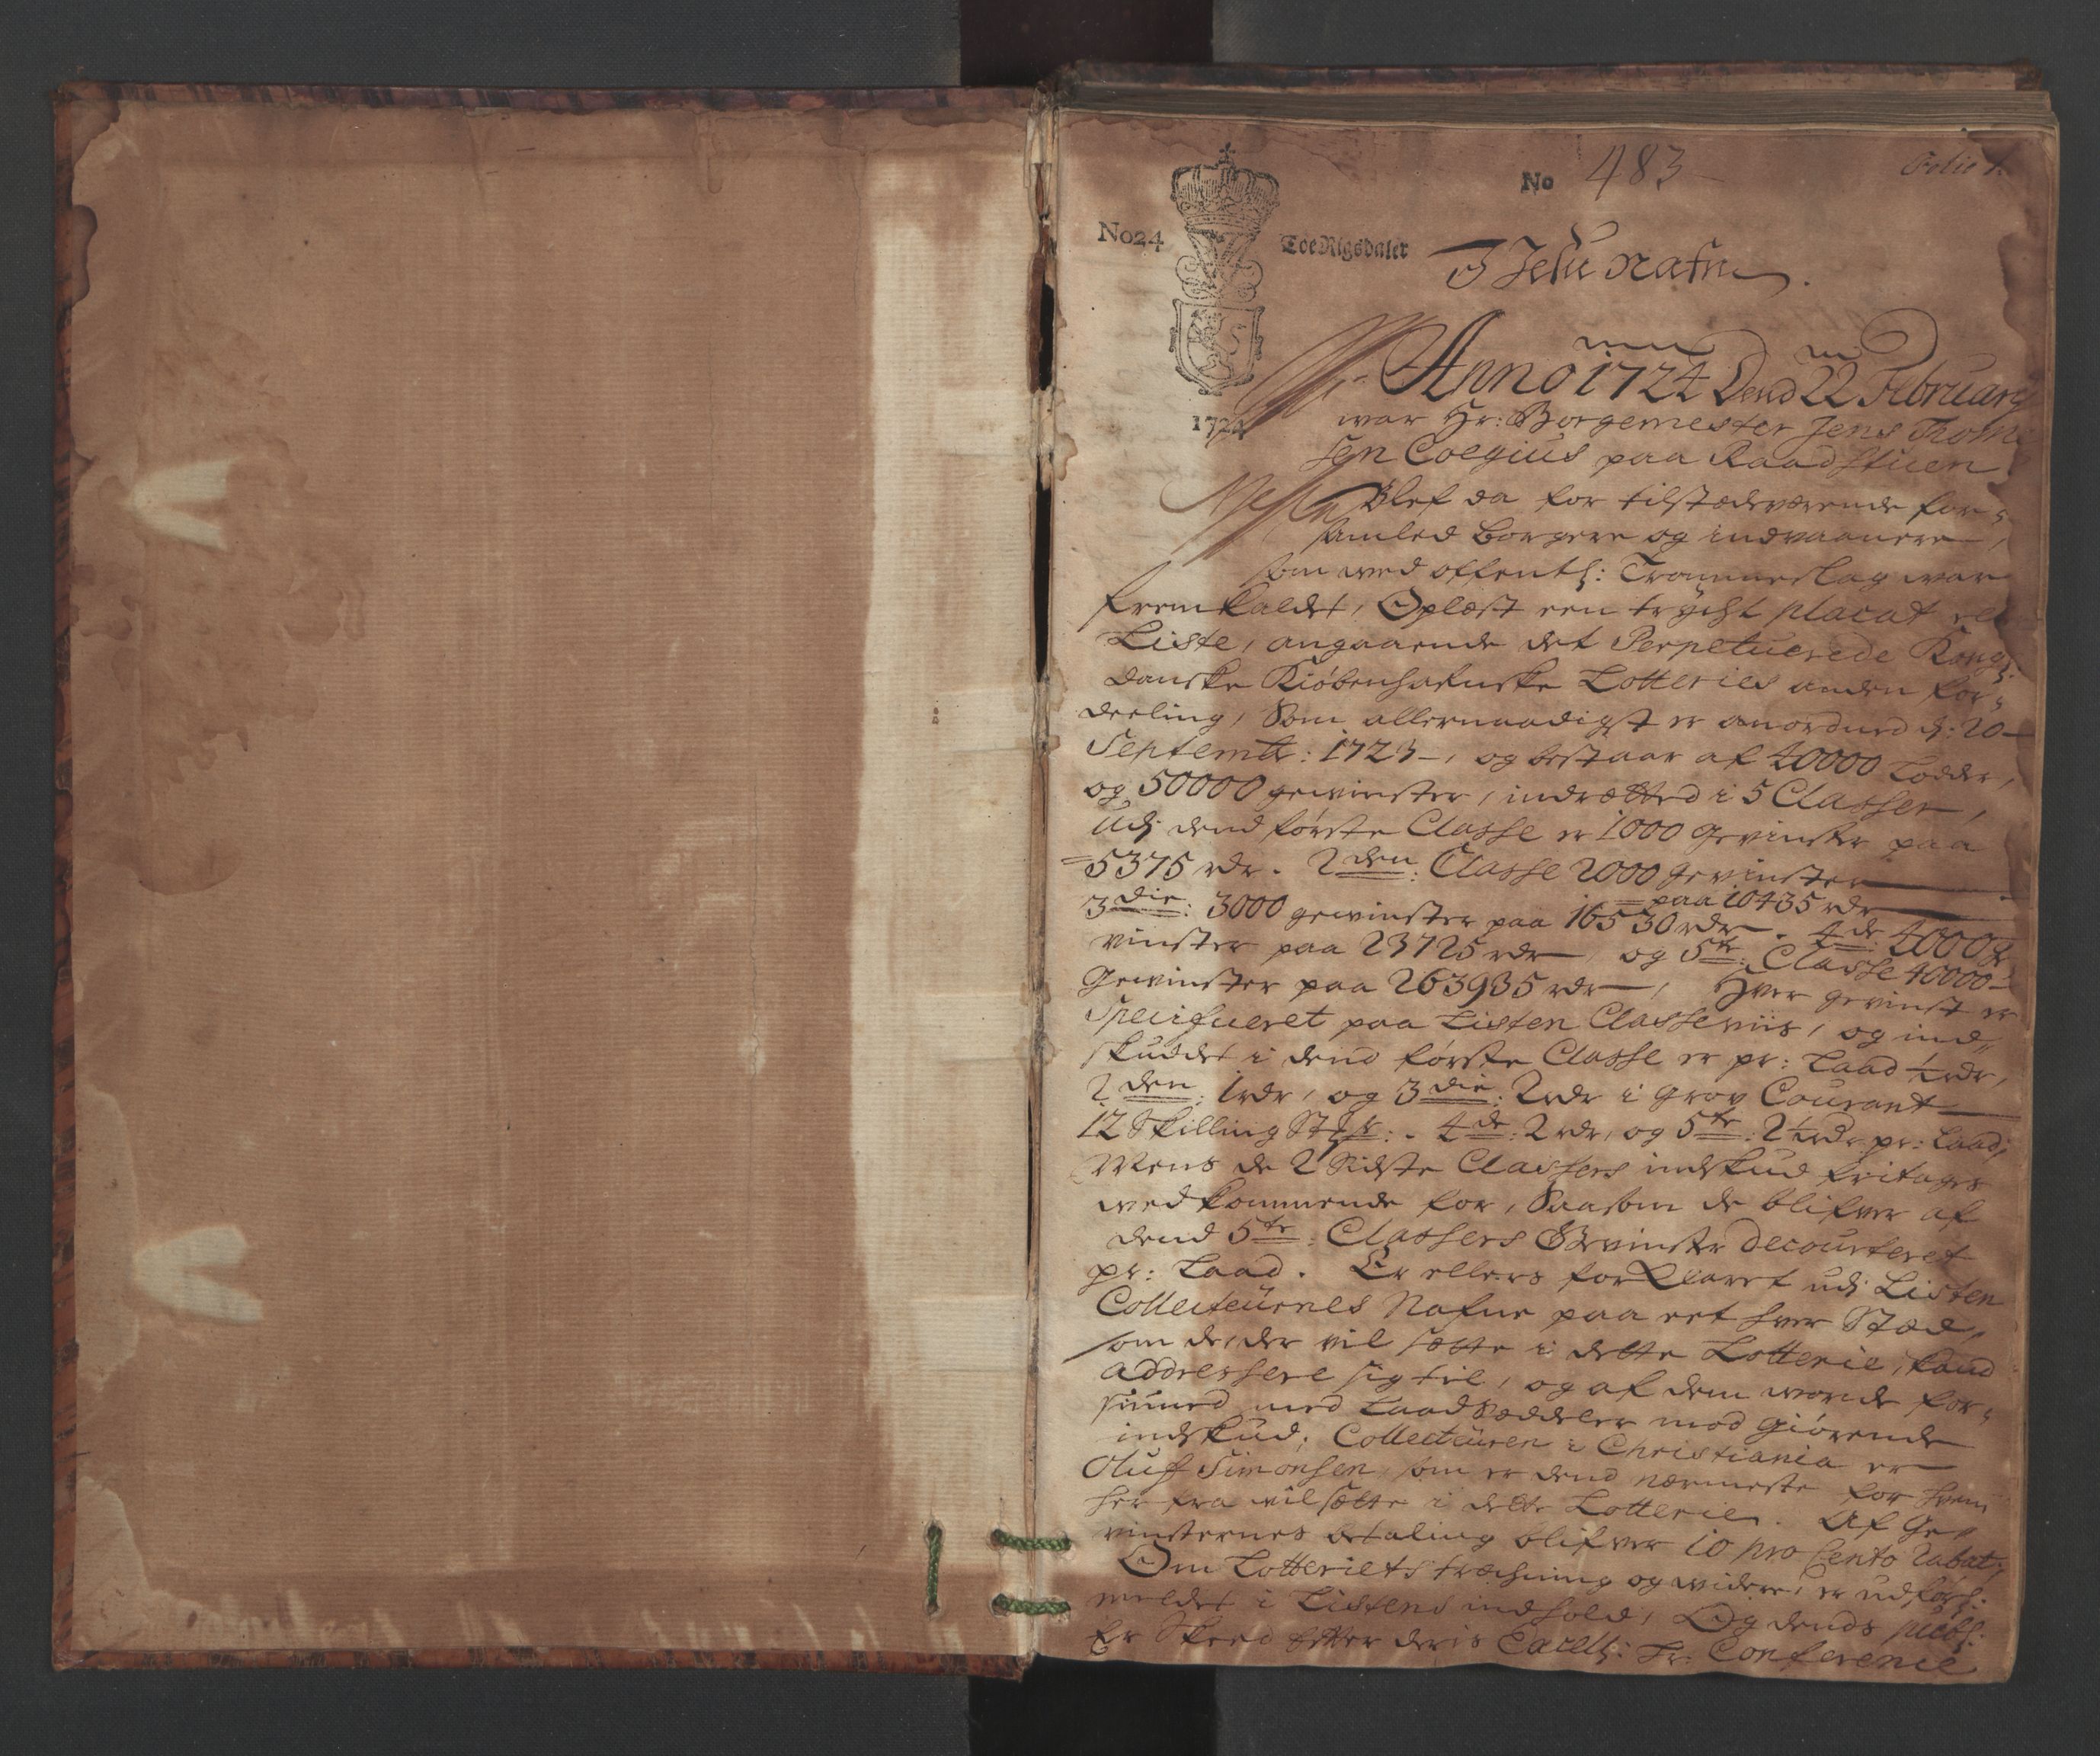 No 483
Folio 1.
No24
Toe Rigsdaler
I Jesu Nafn.
1724
Anno 1724 Dend 22 February
war Hr: Borgemester Jens Thom
sen Coegius paa Raadstuen
Blef da for tilstedeværende for-
samled borgere og indvaanere,
som wed offentl: Trommeslag war
fremkaldet, Oplæst een trycht placat
Liste, angaaende det Perpetuerede Kongl:
danske Kiøbenhafnske Lotteries anden for-
deeling, Som allernaadigst er anordned d: 20
Septembr: 1723, og bestaar af 40000 Lodder,
og 50000 gewinster, indrætted i 5 Classer,
Udj dend første Classe er 1000 Gevinster paa
5375 rdr. 2den: Classe 2000 gevinster
paa 10435 rdr
3die: 3000 gewinster paa 16530 rdr. 4de: 4000 ge
vinster paa 23725 rdr, og 5te: Classe 40000
Gewinster paa 263935 rdr, Hver gevinst er
Specificeret paa Listen Classeviis, og ind-
skuddet i dend første Classe er pr: Laad ½ rdr,
2den: 1 rdr, og 3die: 2 rdr i Grov Courant
12 Skilling St: 4de: 2 rdr, og 5te: 2½ rdr pr: Laad,
Mens de 2 Sidste Classers indskud fritages
wedkommende for, Saasom de blifver af
dend 5te: Classers Gevinster decourteret
pr: Laad. Er ellers forklaret udj Listen
Collecteurnes Nafne paa eet hver Stæd,
som de, der vil sætte i dette Lotterie, kand
addressere sig til, og af dem worde for-
siuned med Laadsedeler mod giørende
indskud; Collecteuren i Christiania er
Oluf Simonsen, som er dend nærmeste for hvem
her fra vil sætte i dette Lotterie. Af Ge-
vinsternes betaling blifver 10 pro Cento Rabat;
Om Lotteriets træchning og widere, er udførl:
meldet i Listens indhold, Og dends publ:
Er Skeed effter deris Excell: Hr: Conference